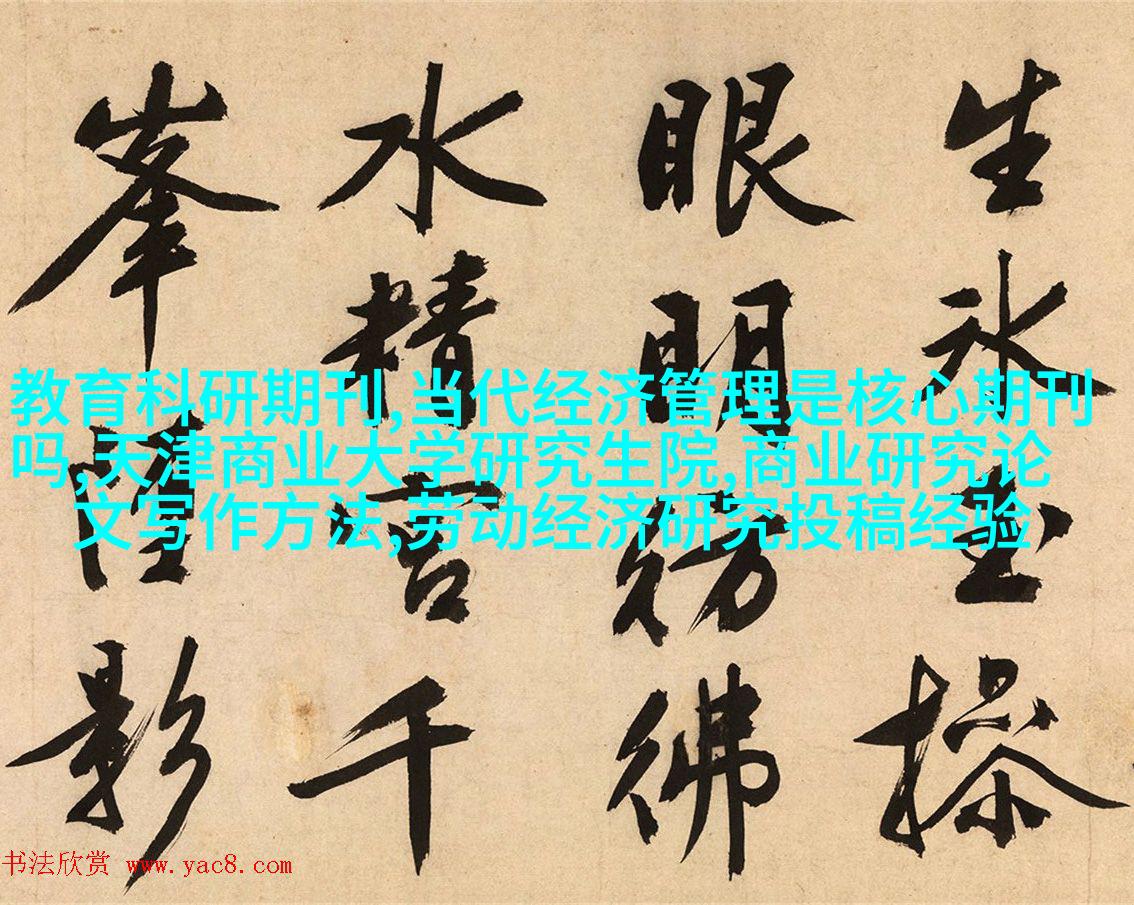 生氷操
眼明彷彿
水精宮千
峯影
教育科研期刊,当代经济管理是核心期刊
吗,天津商业大学研究生院,商业研究论
文写作方法,劳动经济研究投稿经验
书法欣赏 www.yac8.com